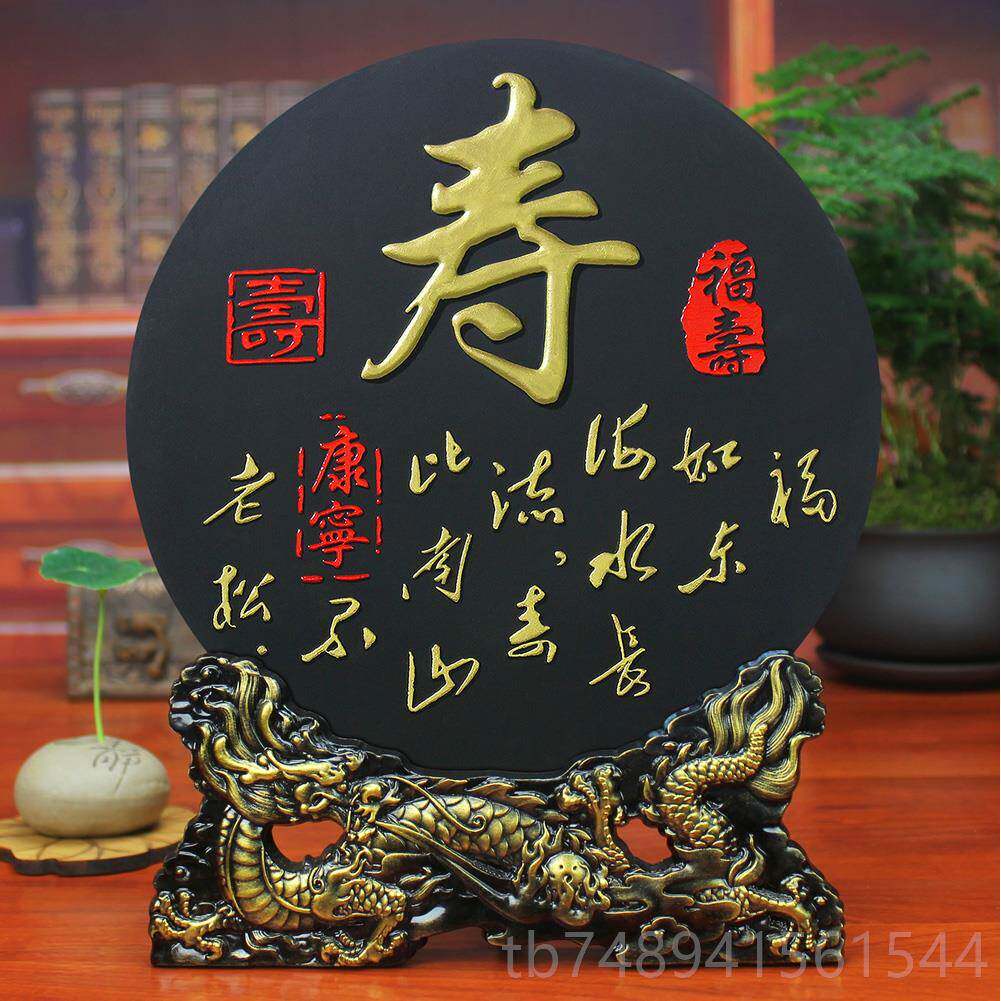 寿
壽
福壽
福
如东
海水长
流、寿
比南山
不
老松.
康寧
tb748941561544